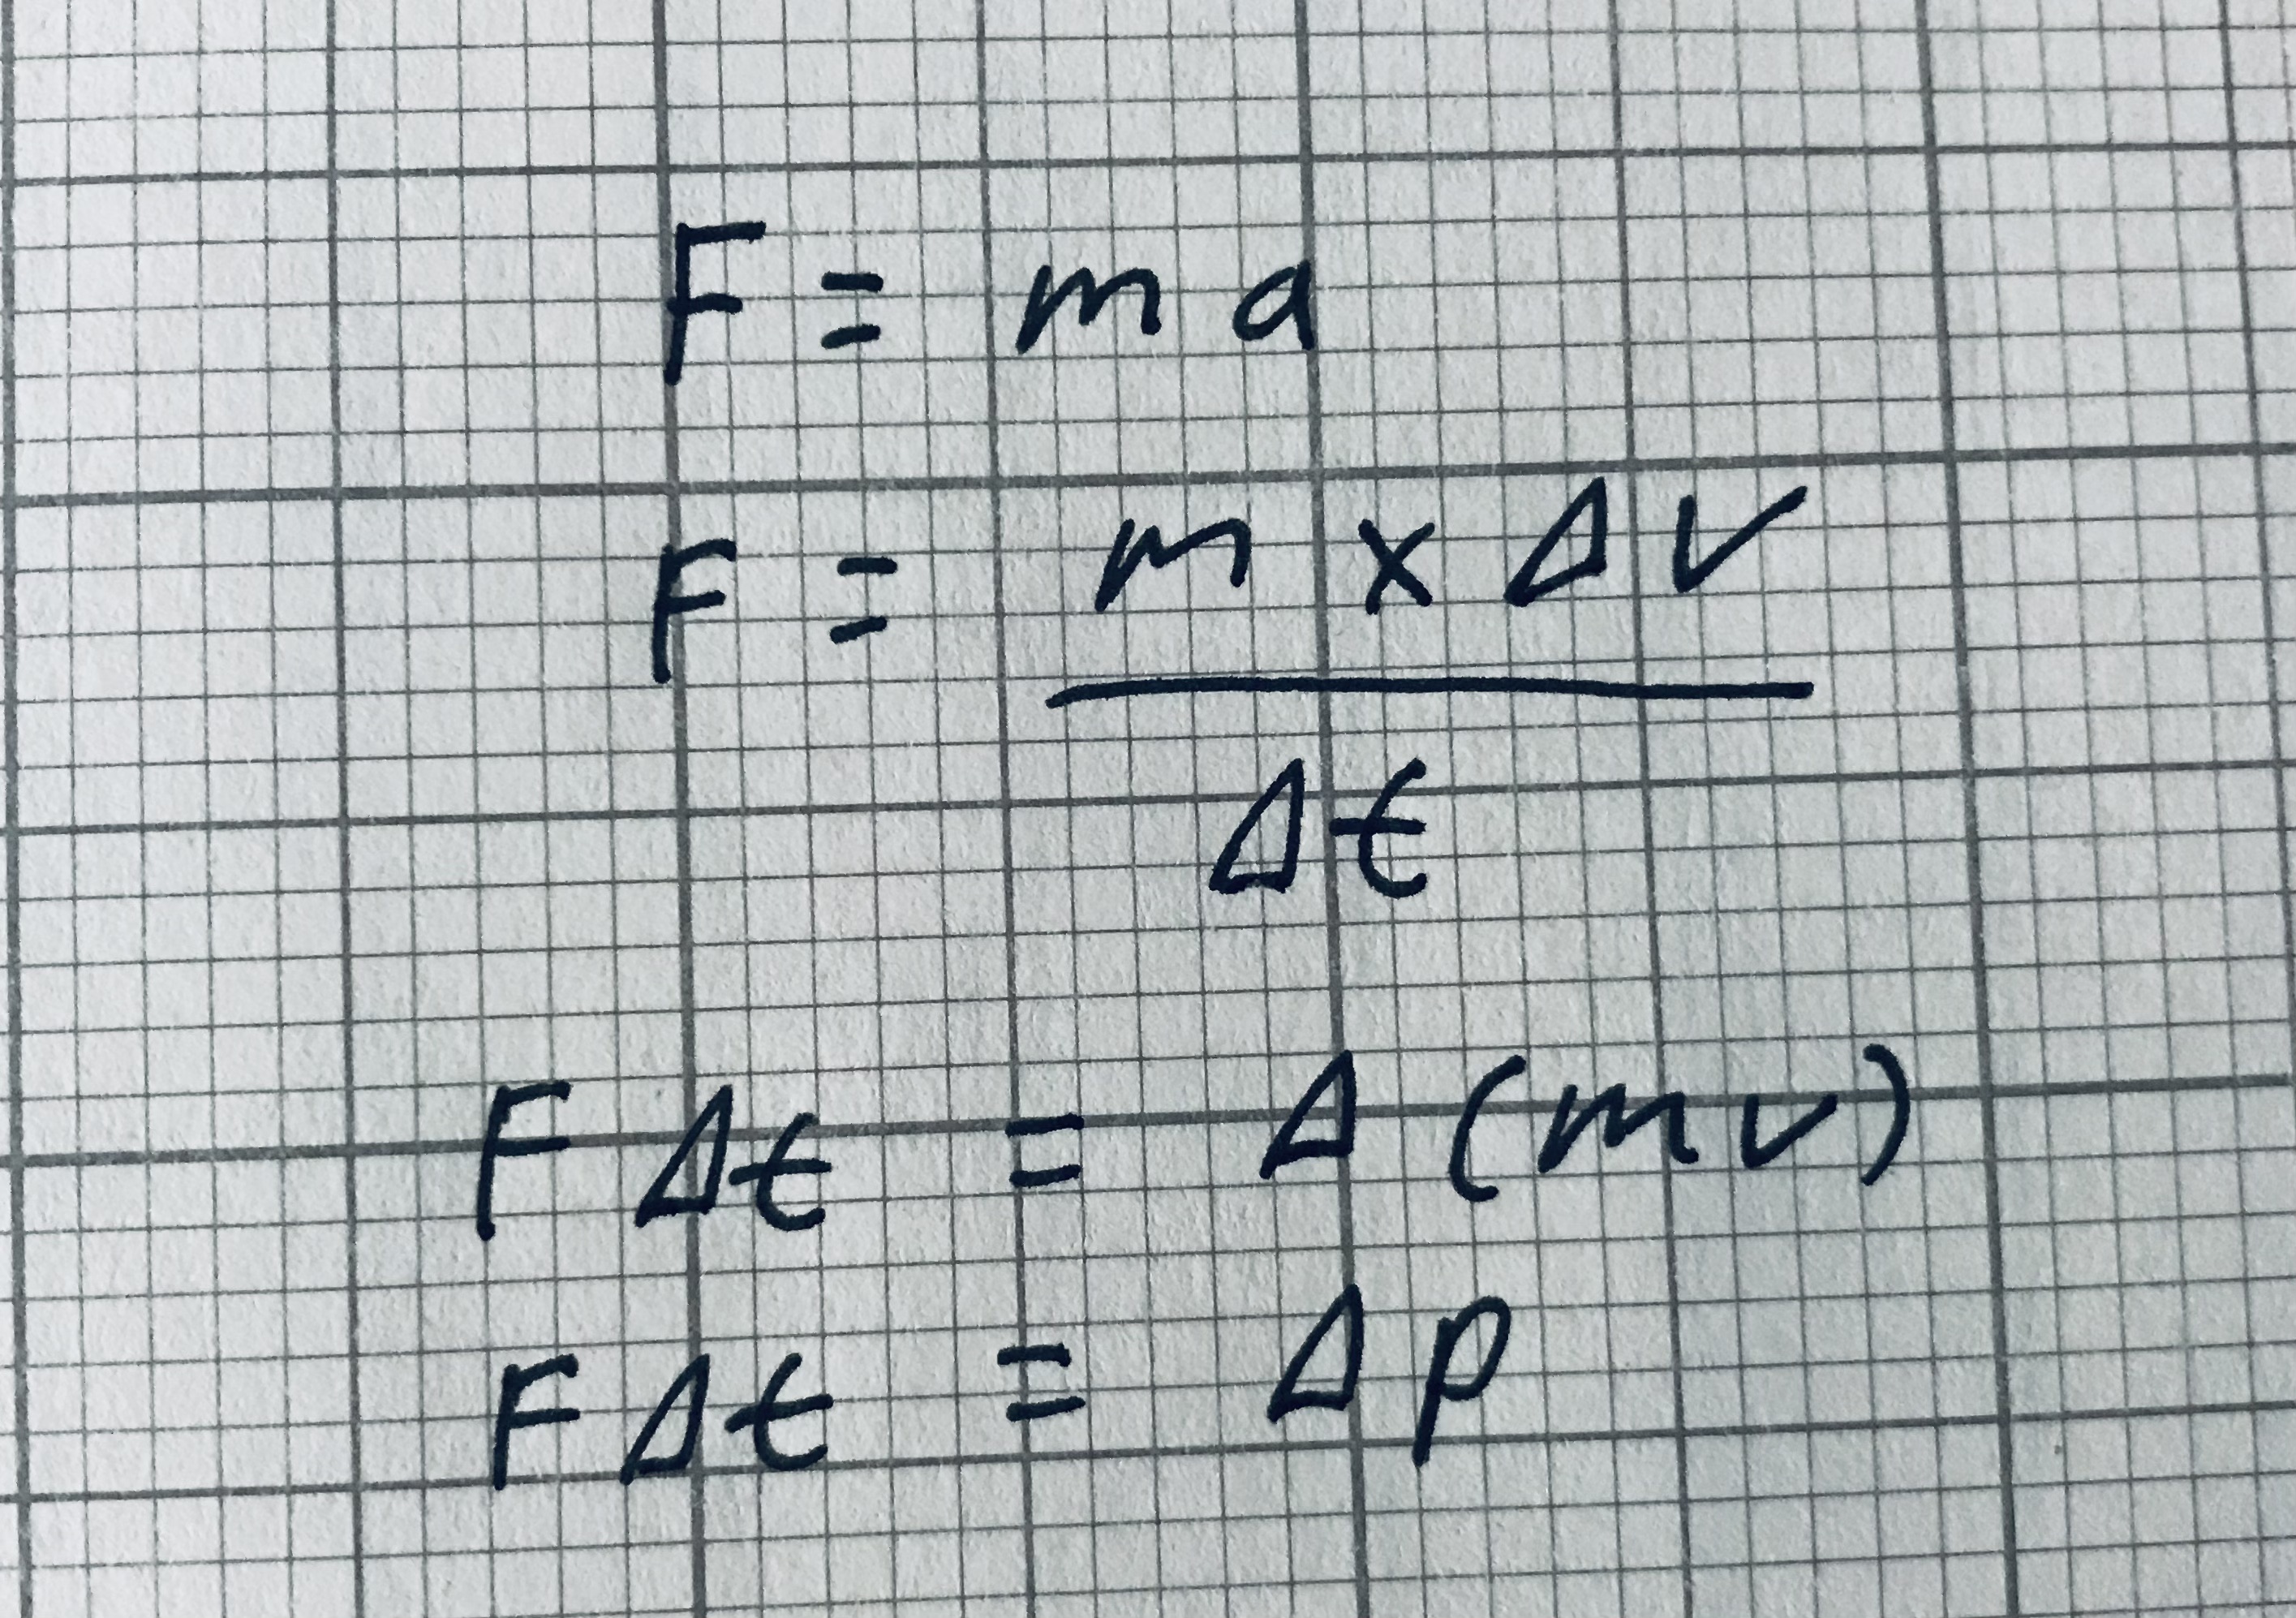 F = ma
F = m × Δv
Δt
F Δt = Δ (mv)
F Δt = Δp